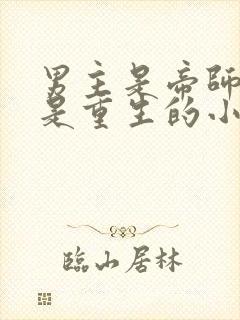 男主是帝師
是重生的小
臨山居林